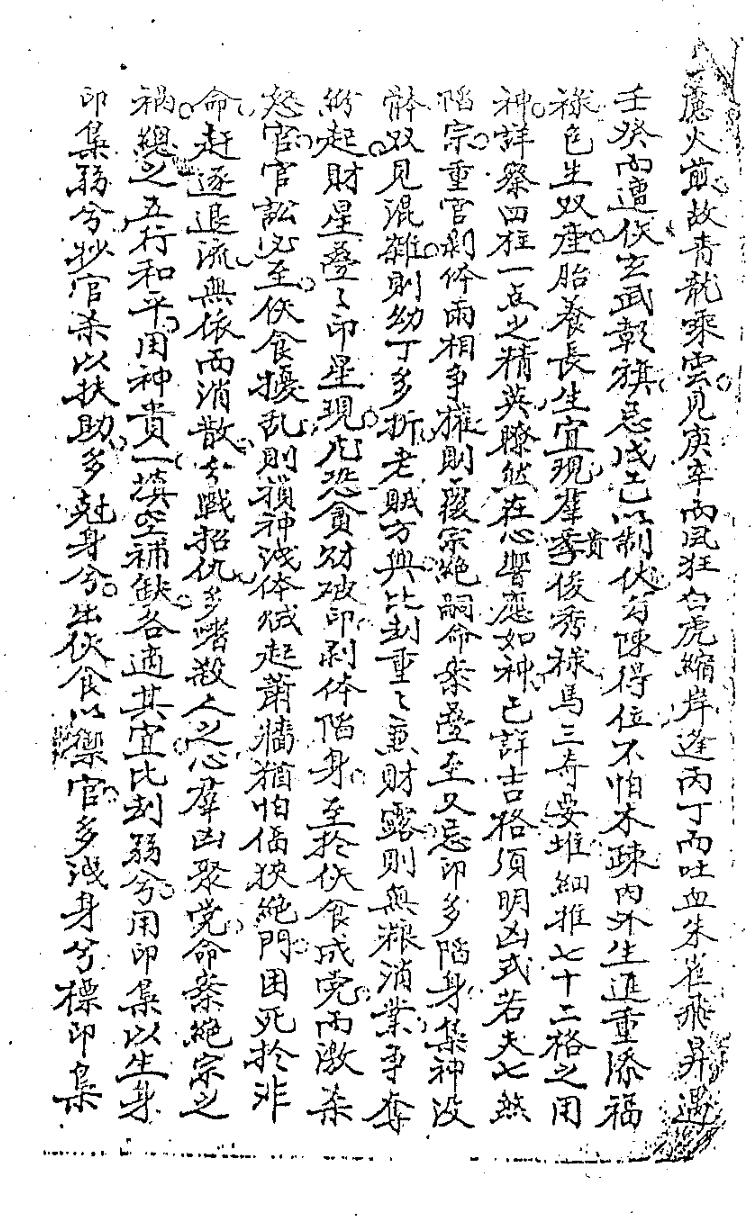 慮火煎故青龍乘雲見庚辛而風狂白虎縮岸逢丙丁而吐血朱雀飛昇遇
壬癸而遭伏玄武彰旗忌戊己以制伏勾陳得位不怕木疎内外生進重添福
祿色生双產胎養長生宜現羣季貴俊秀祿馬三奇要堆細推七十二格之用
神詳察四柱一点之精英瞭然在心響應如神已詳吉格須明凶式若夫七煞
陷宗重官剥伶兩相爭權則覆宗絶嗣命案疊至又忌印多陷身集神没
骵双見混雜則幼丁多折老賊方興比刦重〻兼財露則無粮消業爭奪
紛起財星疊〻印星現尤恐貪財破印剥体陷身至扵伏食成党而激杀
怒官官訟必至伏食擾乱則損神洩体賊起蕭牆猶怕偪狹絶門困死扵非
命赶逐退流無依而消散分戰招仇多嗜殺人之心羣凶聚党命案絶宗之
禍總之五行和平用神貴一填空補缺各適其宜比刦弱兮用印集以生身
印集弱兮抄官杀以扶助多尅身兮出伏食以禦官多洩身兮標印集